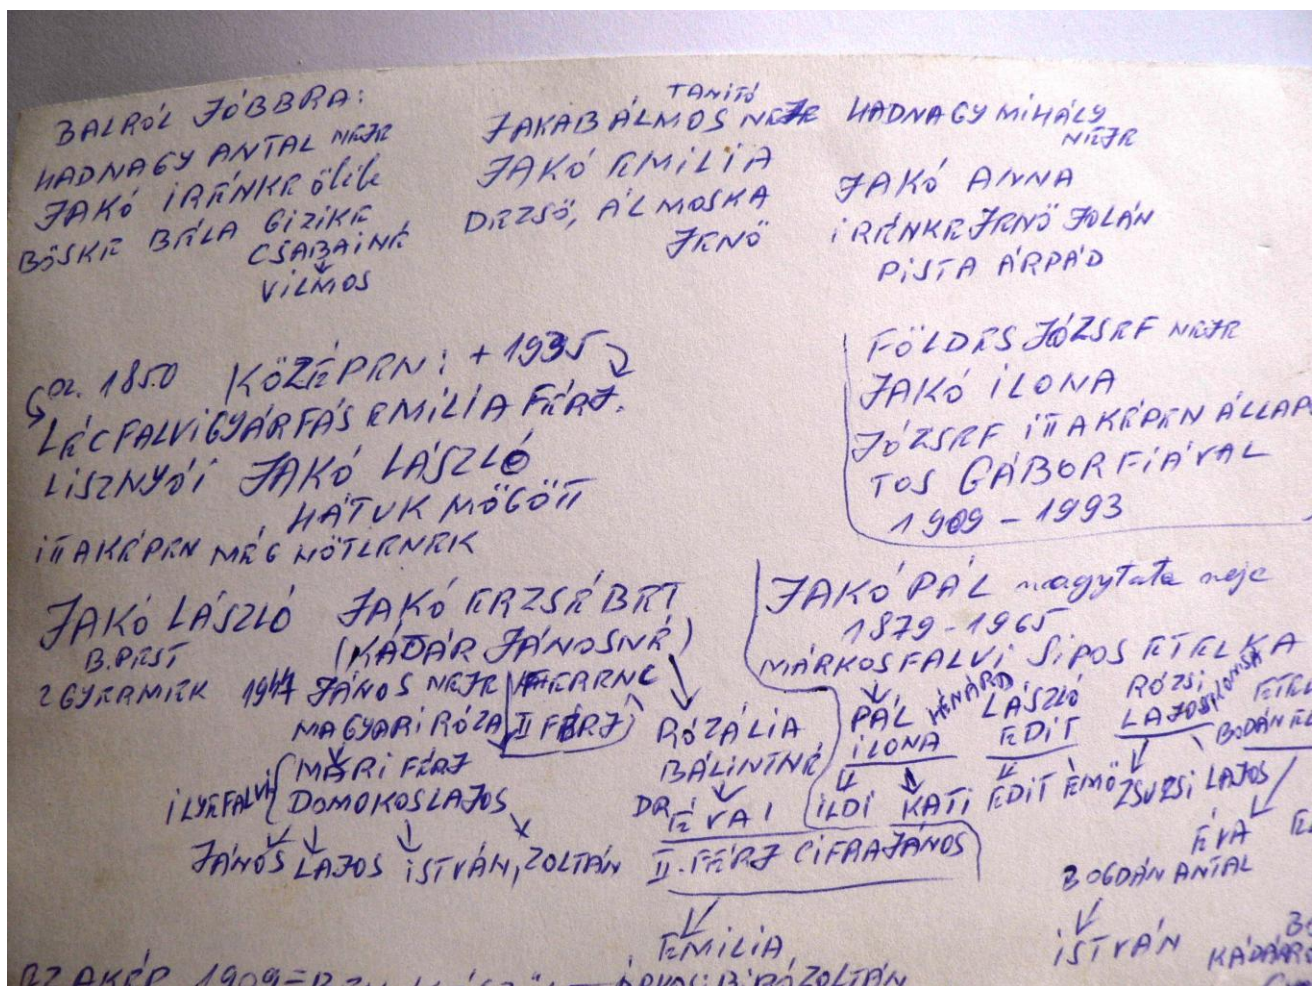 BALRÓL JÓBBRA:
HADNAGY ANTAL NEJE
JAKÓ IRÉNKE
BÖSKE BÉLA GIZIKE
CSABAINÉ
VILMOS
TANÍTÓ
JAKAB ÁLMOS NEJE
JAKÓ EMILIA
DEZSŐ, ÁLMOSKA
JENŐ
HADNAGY MIHÁLY
NEJE
JAKÓ ANNA
IRÉNKE JENŐ JOLÁN
PISTA ÁRPÁD
1850 KÖZÉPEN: +1935
LÉCFALVI GYÁRFÁS EMILIA FÉRJ.
LISZNYÓI JAKÓ LÁSZLÓ
HÁTUK MÖGÖTT
ITT A KÉPEN MÉG NŐTLENEK
FÖLDES JÓZSEF NEJE
JAKÓ ILONA
JÓZSEF ITT A KÉPEN ÁLLAPO
TOS GÁBOR FIÁVAL
1909 - 1993
JAKÓ LÁSZLÓ
B.PEST
2 GYERMEK 1944
JAKÓ ERZSÉBET
(KÁDÁR JÁNOSNÉ)
JÁNOS NEJE FERENC
MAGYARI RÓZA II FÉRJ
MÁRI FÉRJ
ILYEFALVI DOMOKOS LAJOS
JÁNOS LAJOS ISTVÁN, ZOLTÁN
RÓZÁLIA
BÁLINTNÉ
DR ÉVA I
II. FÉRJ CIFRA JÁNOS
EMILIA
JAKÓ PÁL nagytata neje
1879-1965
MÁRKOSFALVI SIPOS ETELKA
PÁL LÁSZLÓ RÓZSI
ILONA EDIT LAJOS
ILDI KATI EDIT EMŐ ZSUZSI LAJOS
ÉVA
BOGDÁN ANTAL
ISTVÁN
AZ A KÉP 1909
BIRÓ ZOLTÁN